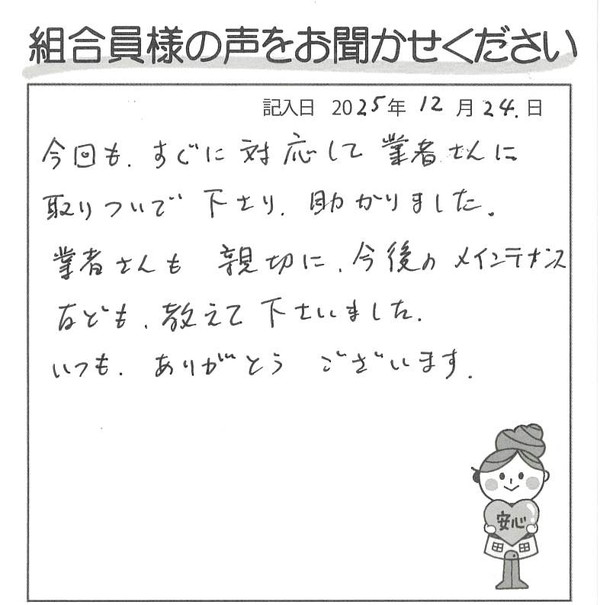 組合員様の声をお聞かせください
記入日 2025年 12月 24.日
今回も、すぐに対応して業者さんに
取りついで下さり、助かりました。
業者さんも親切に、今後のメインテナンス
なども、教えて下さいました。
いつも、ありがとうございます。
安心